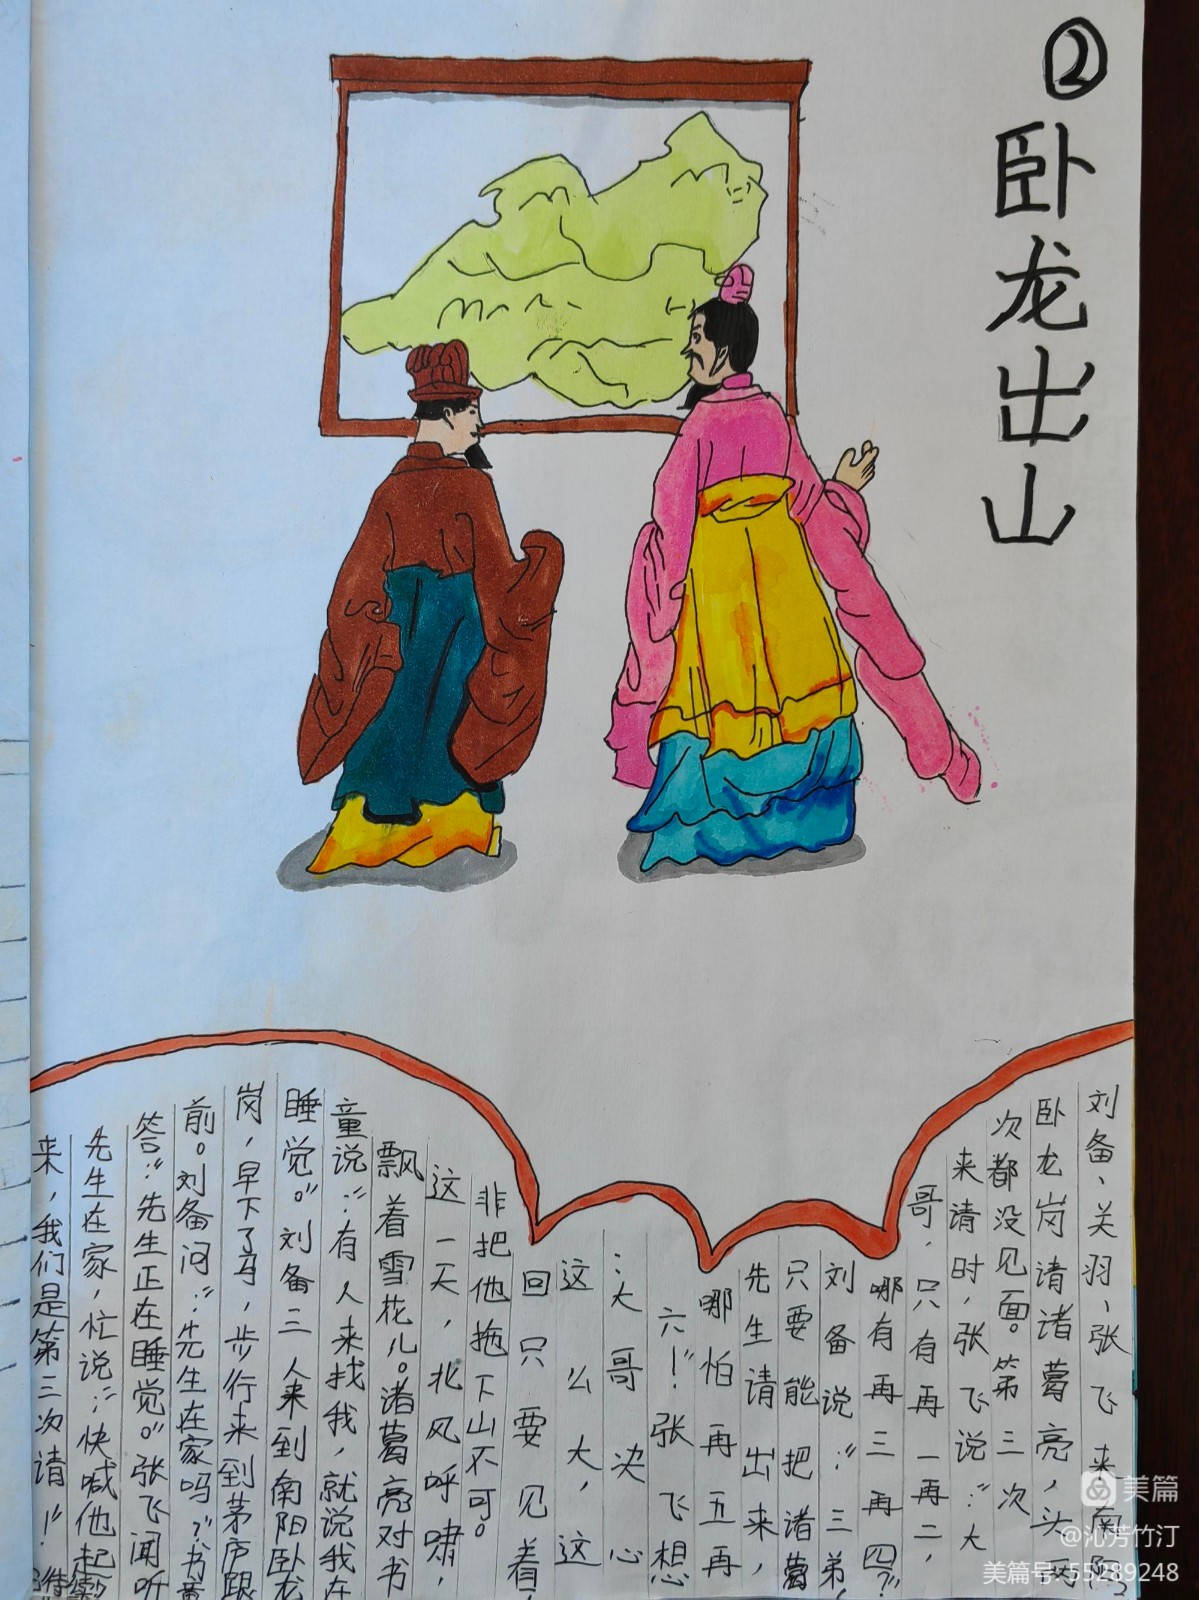 ②
卧龙出山
刘备、关羽、张飞来南阳
卧龙岗请诸葛亮,头两
次都没见面。第三次
来请时,张飞说:“大
哥,只有再一再二,
哪有再三再四?”
刘备说:“三弟,
只要能把诸葛
先生请出来,
哪怕再五再
六!”张飞想
:大哥决心
这么大,这
回只要见着,
非把他拖下山不可。
这一天,北风呼啸,
飘着雪花儿。诸葛亮对书
童说:“有人来找我,就说我在
睡觉。”刘备三人来到南阳卧龙
岗,早下了马,步行来到茅庐跟
前。刘备问:“先生在家吗?”书童
答:“先生正在睡觉。”张飞闻听
先生在家,忙说:“快喊他起
来,我们是第三次请!”
美篇
@沁芳竹汀
美篇号:55289248